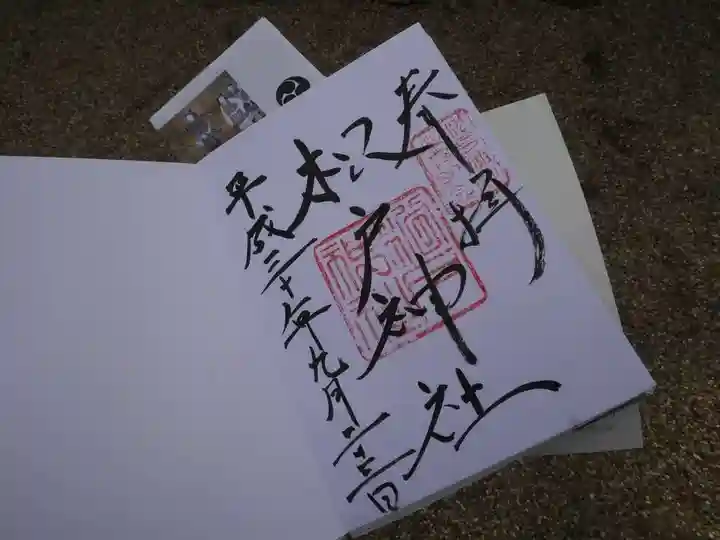 奉拝
松戸神社
平成三十年九月二十三日